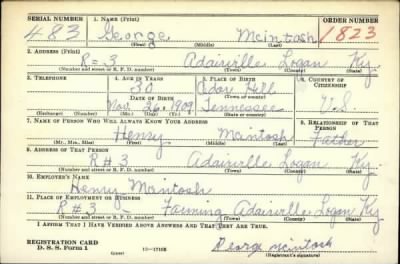 SERIAL NUMBER 1. NAME (Print) ORDER NUMBER
483 George McIntosh 1823
(First) (Middle) (Last)
2. ADDRESS (Print)
R-3 Adairville Logan Ky.
(Number and street or R. F. D. number) (Town) (County) (State)
3. TELEPHONE 4. AGE IN YEARS 5. PLACE OF BIRTH 6. COUNTRY OF CITIZENSHIP
30 Hill
DATE OF BIRTH (Town or county)
Nov. 26, 1909 Tennessee U.S.
(Exchange) (Number) (Mo.) (Day) (Yr.) (State or country)
7. NAME OF PERSON WHO WILL ALWAYS KNOW YOUR ADDRESS 8. RELATIONSHIP OF THAT PERSON
Henry McIntosh Father
(Mr., Mrs., Miss) (First) (Middle) (Last)
9. ADDRESS OF THAT PERSON
R#3 Adairville Logan Ky.
(Number and street or R. F. D. number) (Town) (County) (State)
10. EMPLOYER'S NAME
Henry McIntosh
11. PLACE OF EMPLOYMENT OR BUSINESS
R#3 - Farming Adairville Logan Ky
(Number and street or R. F. D. number) (Town) (County) (State)
I AFFIRM THAT I HAVE VERIFIED ABOVE ANSWERS AND THAT THEY ARE TRUE.
REGISTRATION CARD
D. S. S. Form 1 George McIntosh
(Registrant's signature)